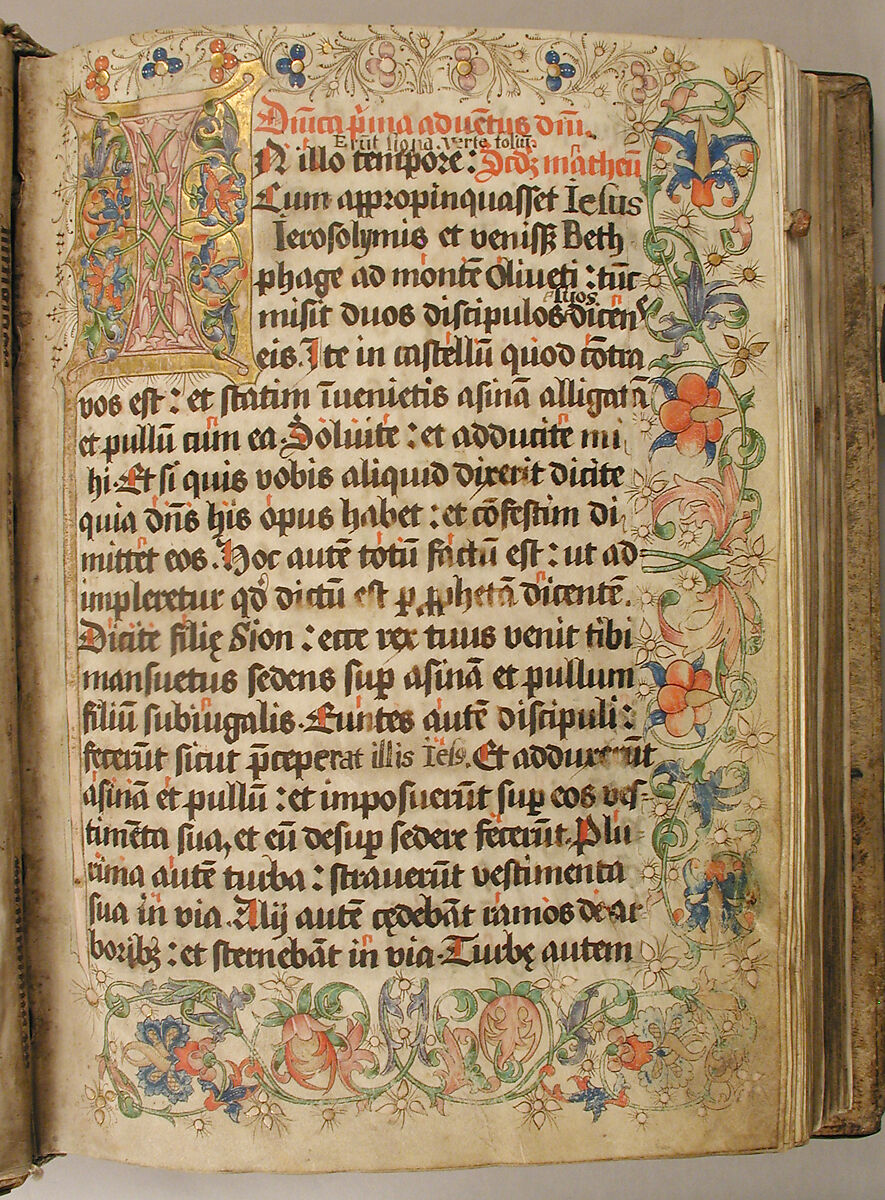 Dñica p̃ma aduẽtus dñi.
Erũt signa. verte foliũ.
IN illo tempore: Scd̃z matheũ
Cum appropinquasset Iesus
Ierosolymis et veniss̃ Beth
phage ad montẽ Oliueti: tũc
suos
misit duos discipulos dicens
eis. Ite in castellũ quod cõtra
vos est: et statim ĩuenietis asinã alligatã
et pullũ cum ea. Soluite: et adducite mi
hi. Et si quis vobis aliquid dixerit dicite
quia dñs his opus habet: et cõfestim di
mittet eos. Hoc autẽ totũ factũ est: ut ad
impleretur qđ dictũ est ꝑ ꝓphetã dicentẽ.
Dicite filię Sion: ecce rex tuus venit tibi
mansuetus sedens suꝑ asinã et pullum
filiũ subiugalis. Euntes autẽ discipuli:
fecerũt sicut p̃ceperat illis Iesꝰ. Et adduxerũt
asinã et pullũ: et imposuerũt suꝑ eos ves-
timẽta sua, et eũ desuꝑ sedere fecerũt. Plu
rima autẽ turba: straverũt vestimenta
sua in via. Alij autẽ cędebãt ramos de ar
boribꝫ: et sternebãt in via. Turbę autem